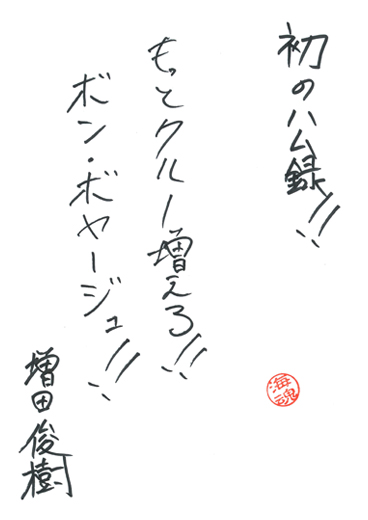 初のハム録!!
もっとクルー増えろ!!
ボン・ボヤージュ!!
増田俊樹
海魂